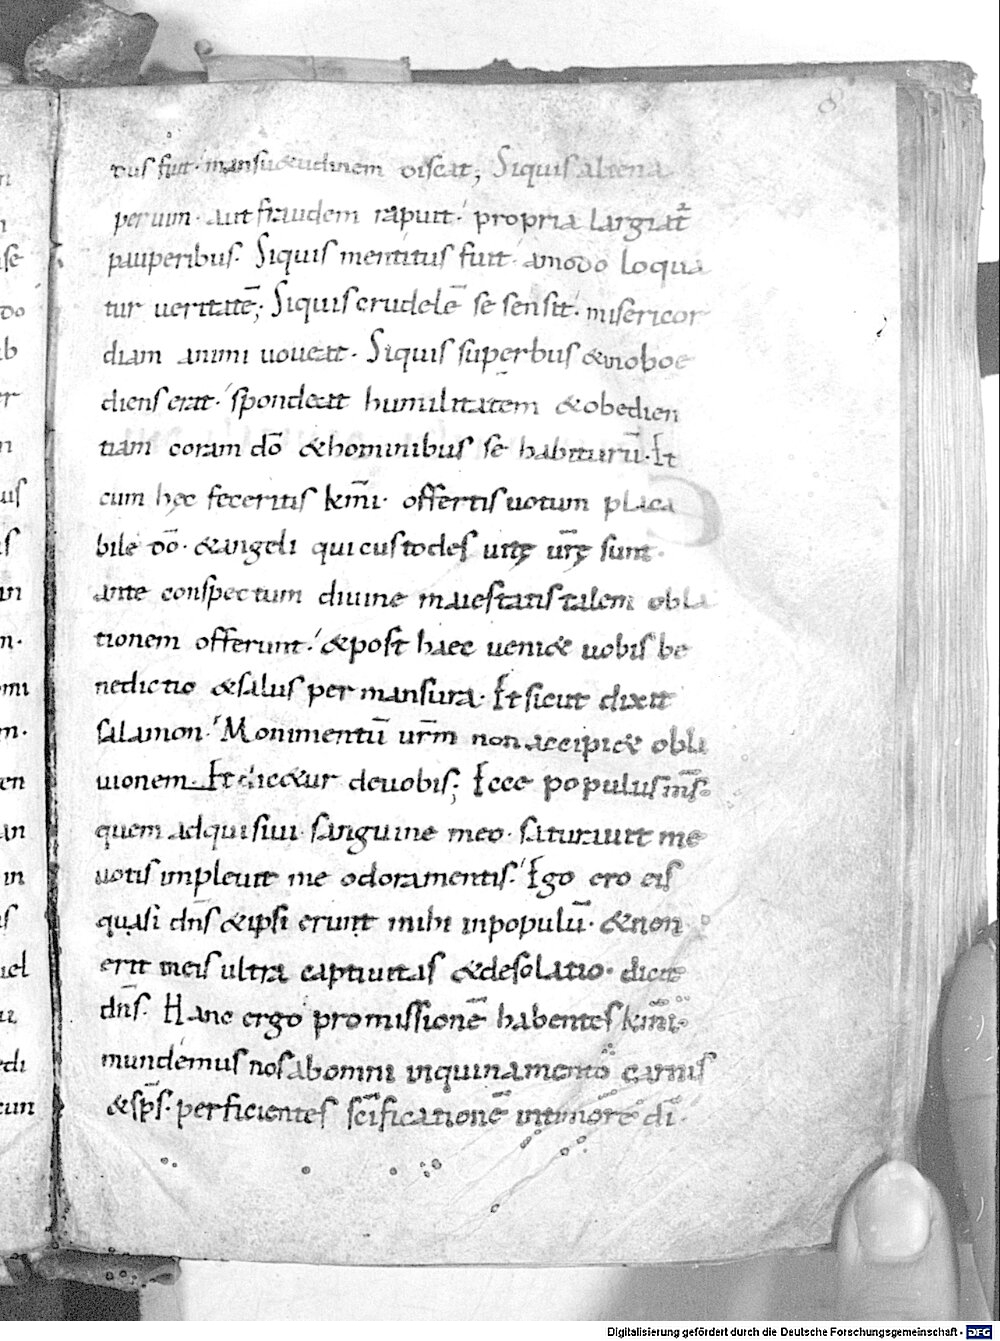 8
tus fuit· mansu&udinem discat; Siquis aliena
per uim· aut fraudem rapuit· propria largiat̄
pauperibus· Siquis mentitus fuit· amodo loqua
tur ueritatē; Siquis crudelē se sensit· misericor
diam animi uoueat· Siquis superbus &inoboe
diens erat· spondeat humilitatem &obedien
tiam coram dō &hominibus se habiturū· Et
cum hęc feceritis km̄i· offertis uotum placa
bile dō· &angeli qui custodes uitę ur̄ę sunt·
ante conspectum diuine maiestatis talem obla
tionem offerunt· &post haec ueni& uobis be
nedictio &salus per mansura· Et sicut dixit
salamon· Monimentū ur̄m non accipi& obli
uionem· Et dic&ur deuobis; Ecce populus m̄s·
quem adquisiui sanguine meo· saturauit me
uotis impleuit me odoramentis· Ego ero eis
quasi dn̄s &ipsi erunt mihi inpopulū· &non
erit meis ultra captiuitas &desolatio· dicit
dn̄s· Hanc ergo promissionē habentes km̄i·
mundemus nos abomni inquinamento carnis
&sp̄s· perficientes sc̄ificationē intimore dī·
Digitalisierung gefördert durch die Deutsche Forschungsgemeinschaft - DFG